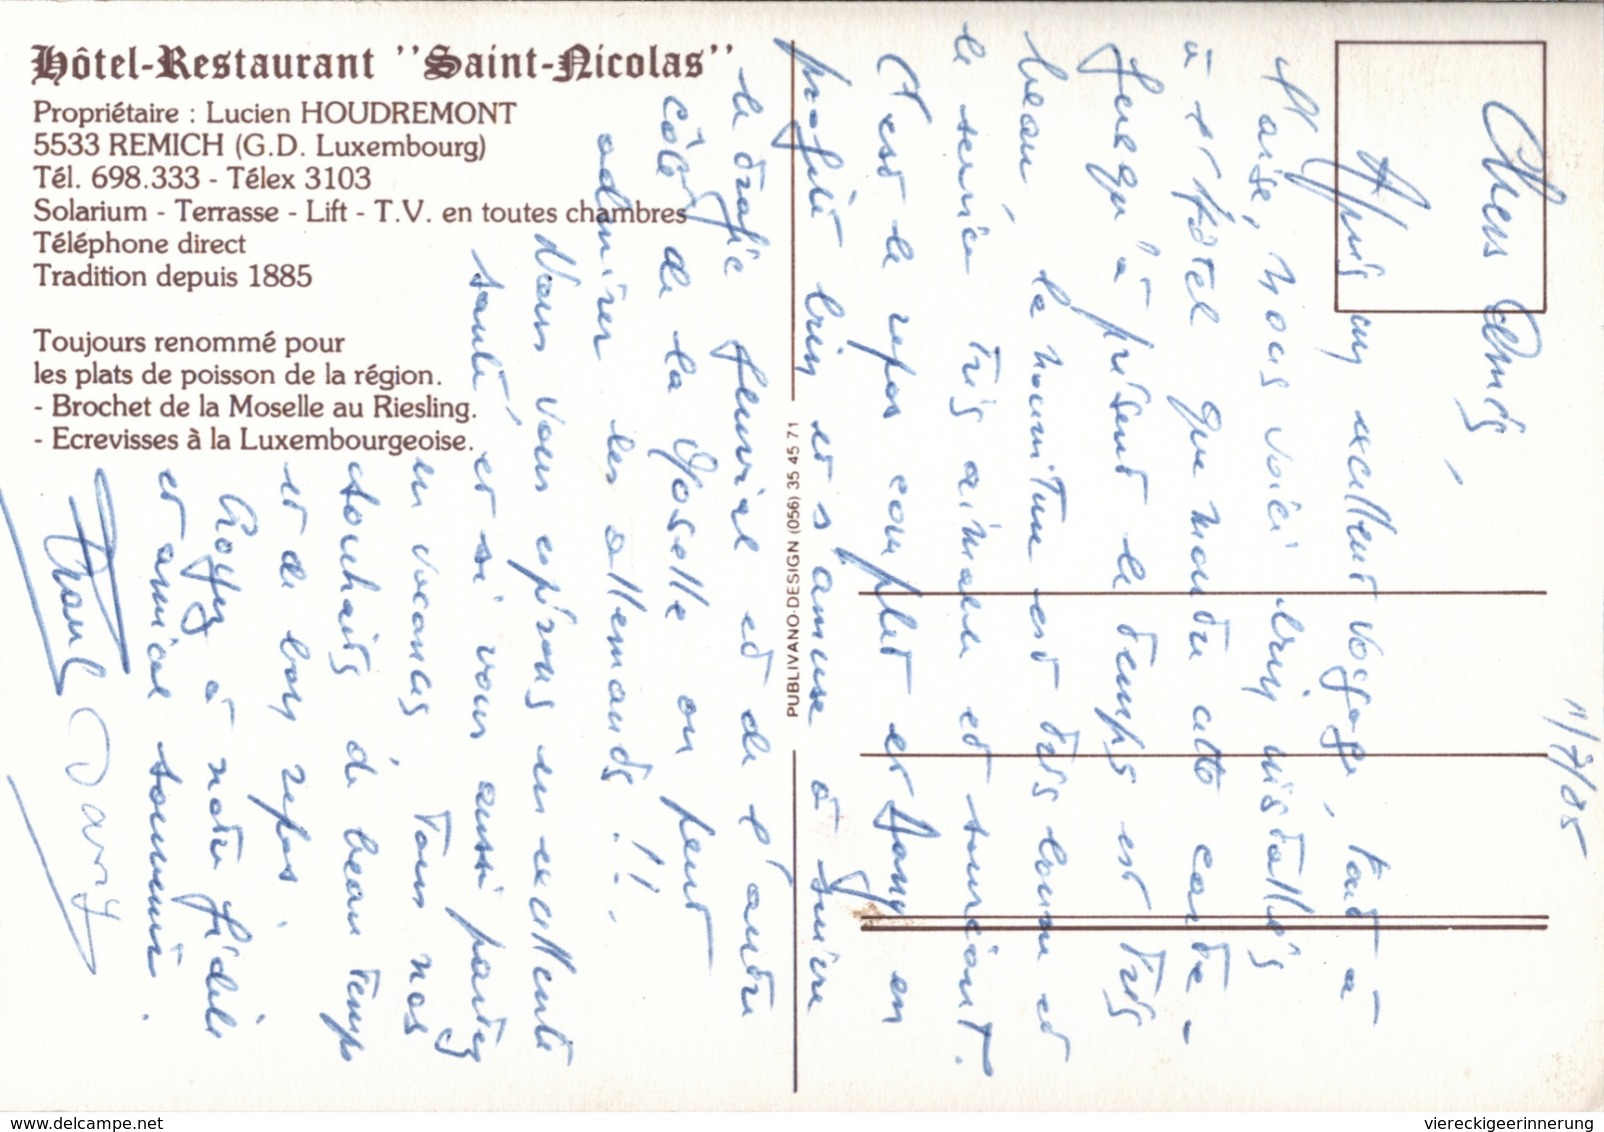 Hôtel-Restaurant ''Saint-Nicolas''
Propriétaire : Lucien HOUDREMONT
5533 REMICH (G.D. Luxembourg)
Tél. 698.333 - Télex 3103
Solarium - Terrasse - Lift - T.V. en toutes chambres
Téléphone direct
Tradition depuis 1885
Toujours renommé pour
les plats de poisson de la région.
- Brochet de la Moselle au Riesling.
- Ecrevisses à la Luxembourgeoise.
PUBLIVANO-DESIGN (056) 35 45 71
11/7/85
Chers Amis,
Après un excellent voyage, tout à
l'aise, nous voici bien installés
à l'hôtel que montre cette carte.
Jusqu'à présent le temps est très
beau, la nourriture est très bonne et
le service très aimable et souriant.
C'est le repos complet et Hony en
profite bien et s'amuse à suivre
le trafic fluvial et de l'autre
côté de la Moselle on peut
admirer les allemands !!.
Nous vous espérons en excellente
santé, et si vous aussi partez
en vacances, tous nos
souhaits de beau temps
et de bon repos.
Croyez à notre fidèle
et amical souvenir.
David
delcampe.net
viereckigeerinnerung